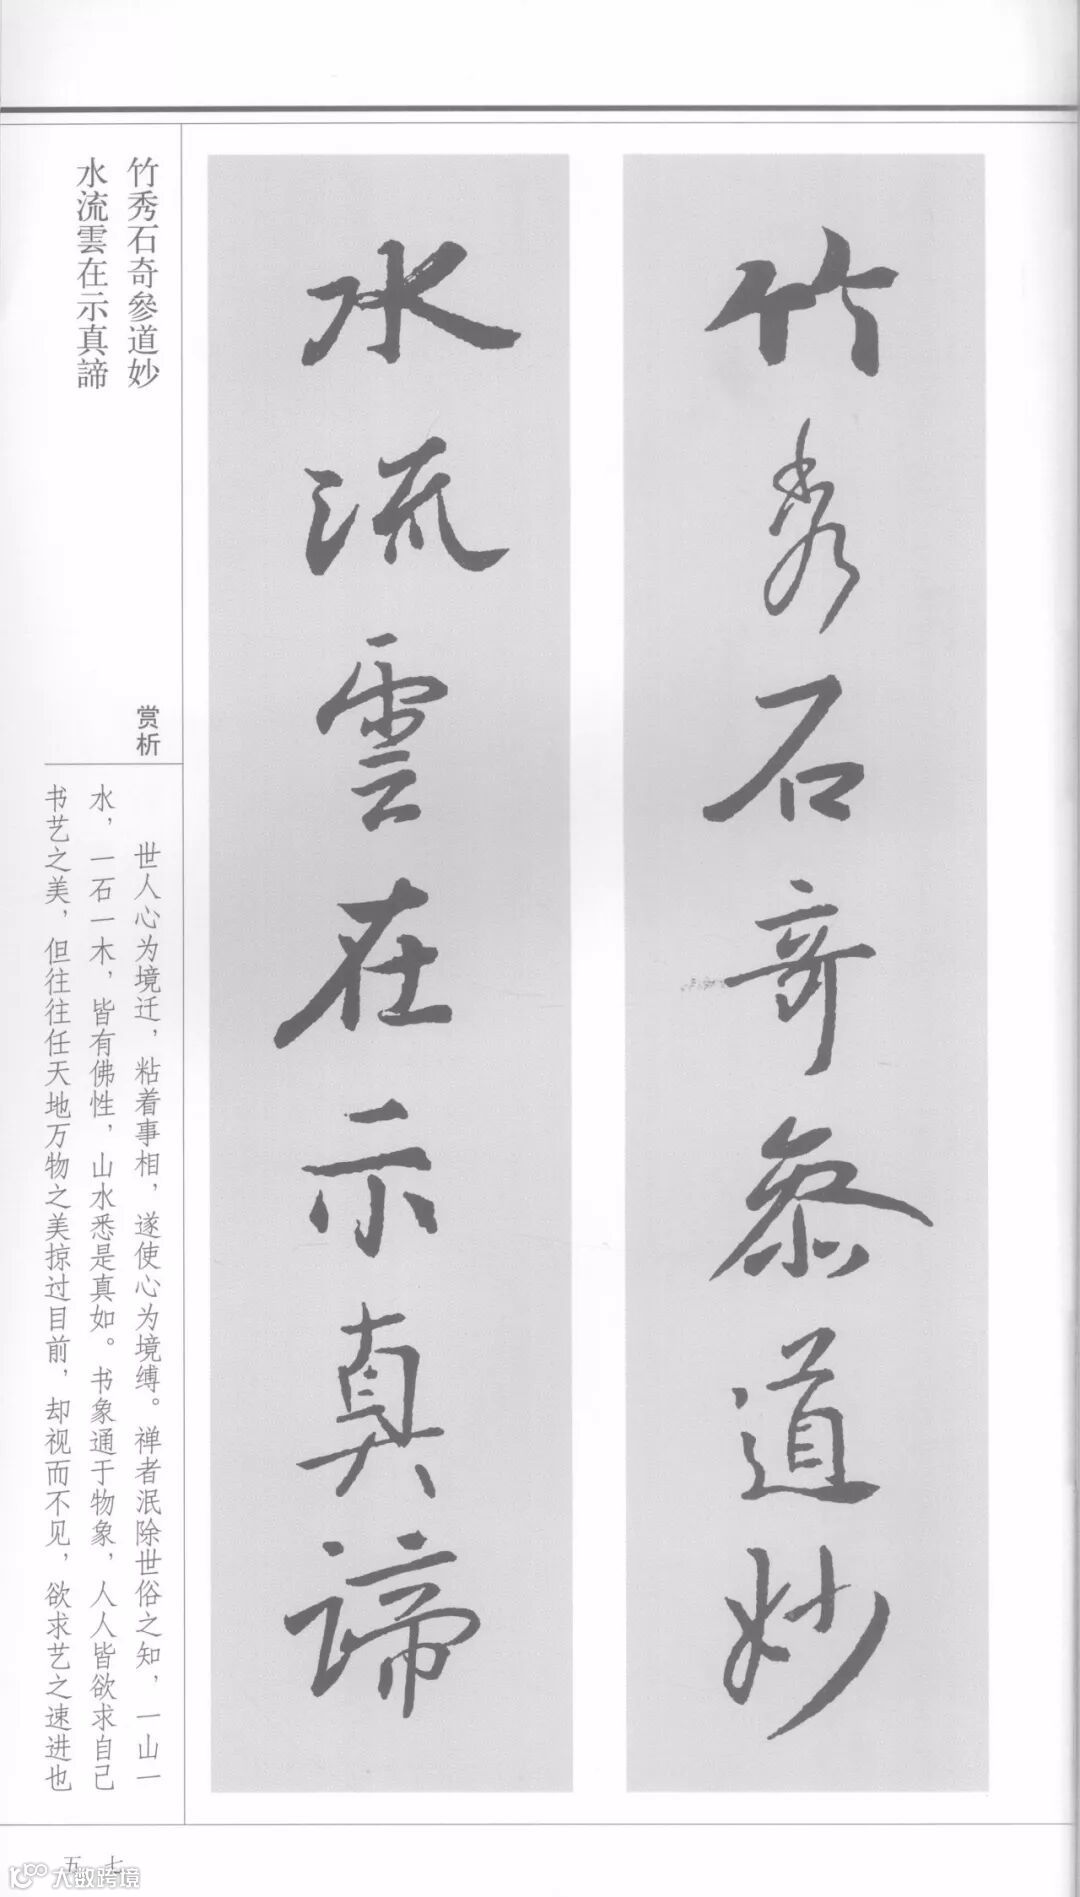 竹秀石奇參道妙
水流雲在示真諦
竹秀石奇參道妙
水流雲在示真諦
赏析
世人心为境迁，粘着事相，遂使心为境缚。禅者泯除世俗之知，一山一
水，一石一木，皆有佛性，山水悉是真如。书象通于物象，人人皆欲求自己
书艺之美，但往往任天地万物之美掠过目前，却视而不见，欲求艺之速进也
五七
大数跨境